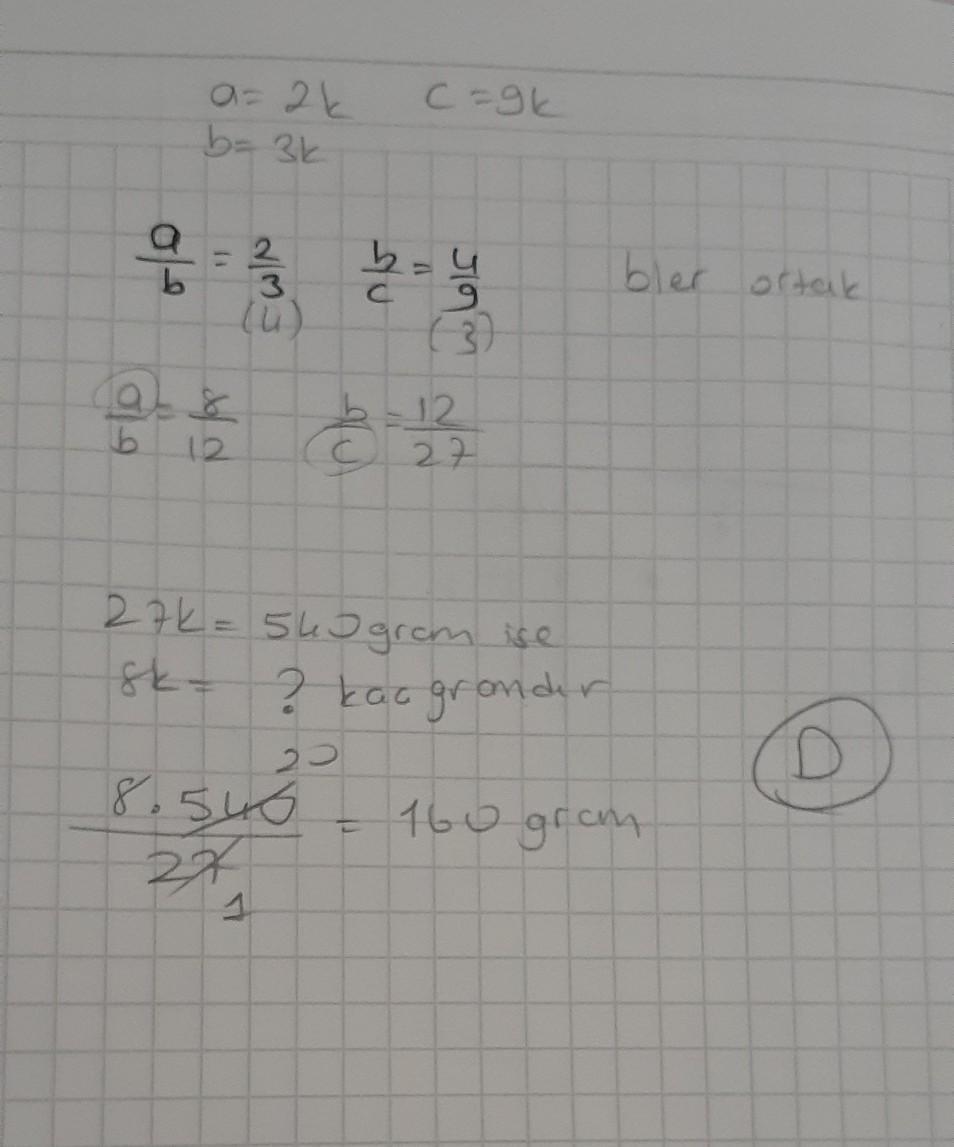 a = 2k c = 9k
b = 3k
a/b = 2/3 b/c = 4/9 bler ortak
(4) (3)
a/b = 8/12 b/c = 12/27
27k = 540 gram ise
8k = ? kac gramdır
20
8.540/27 = 160 gram
1
D